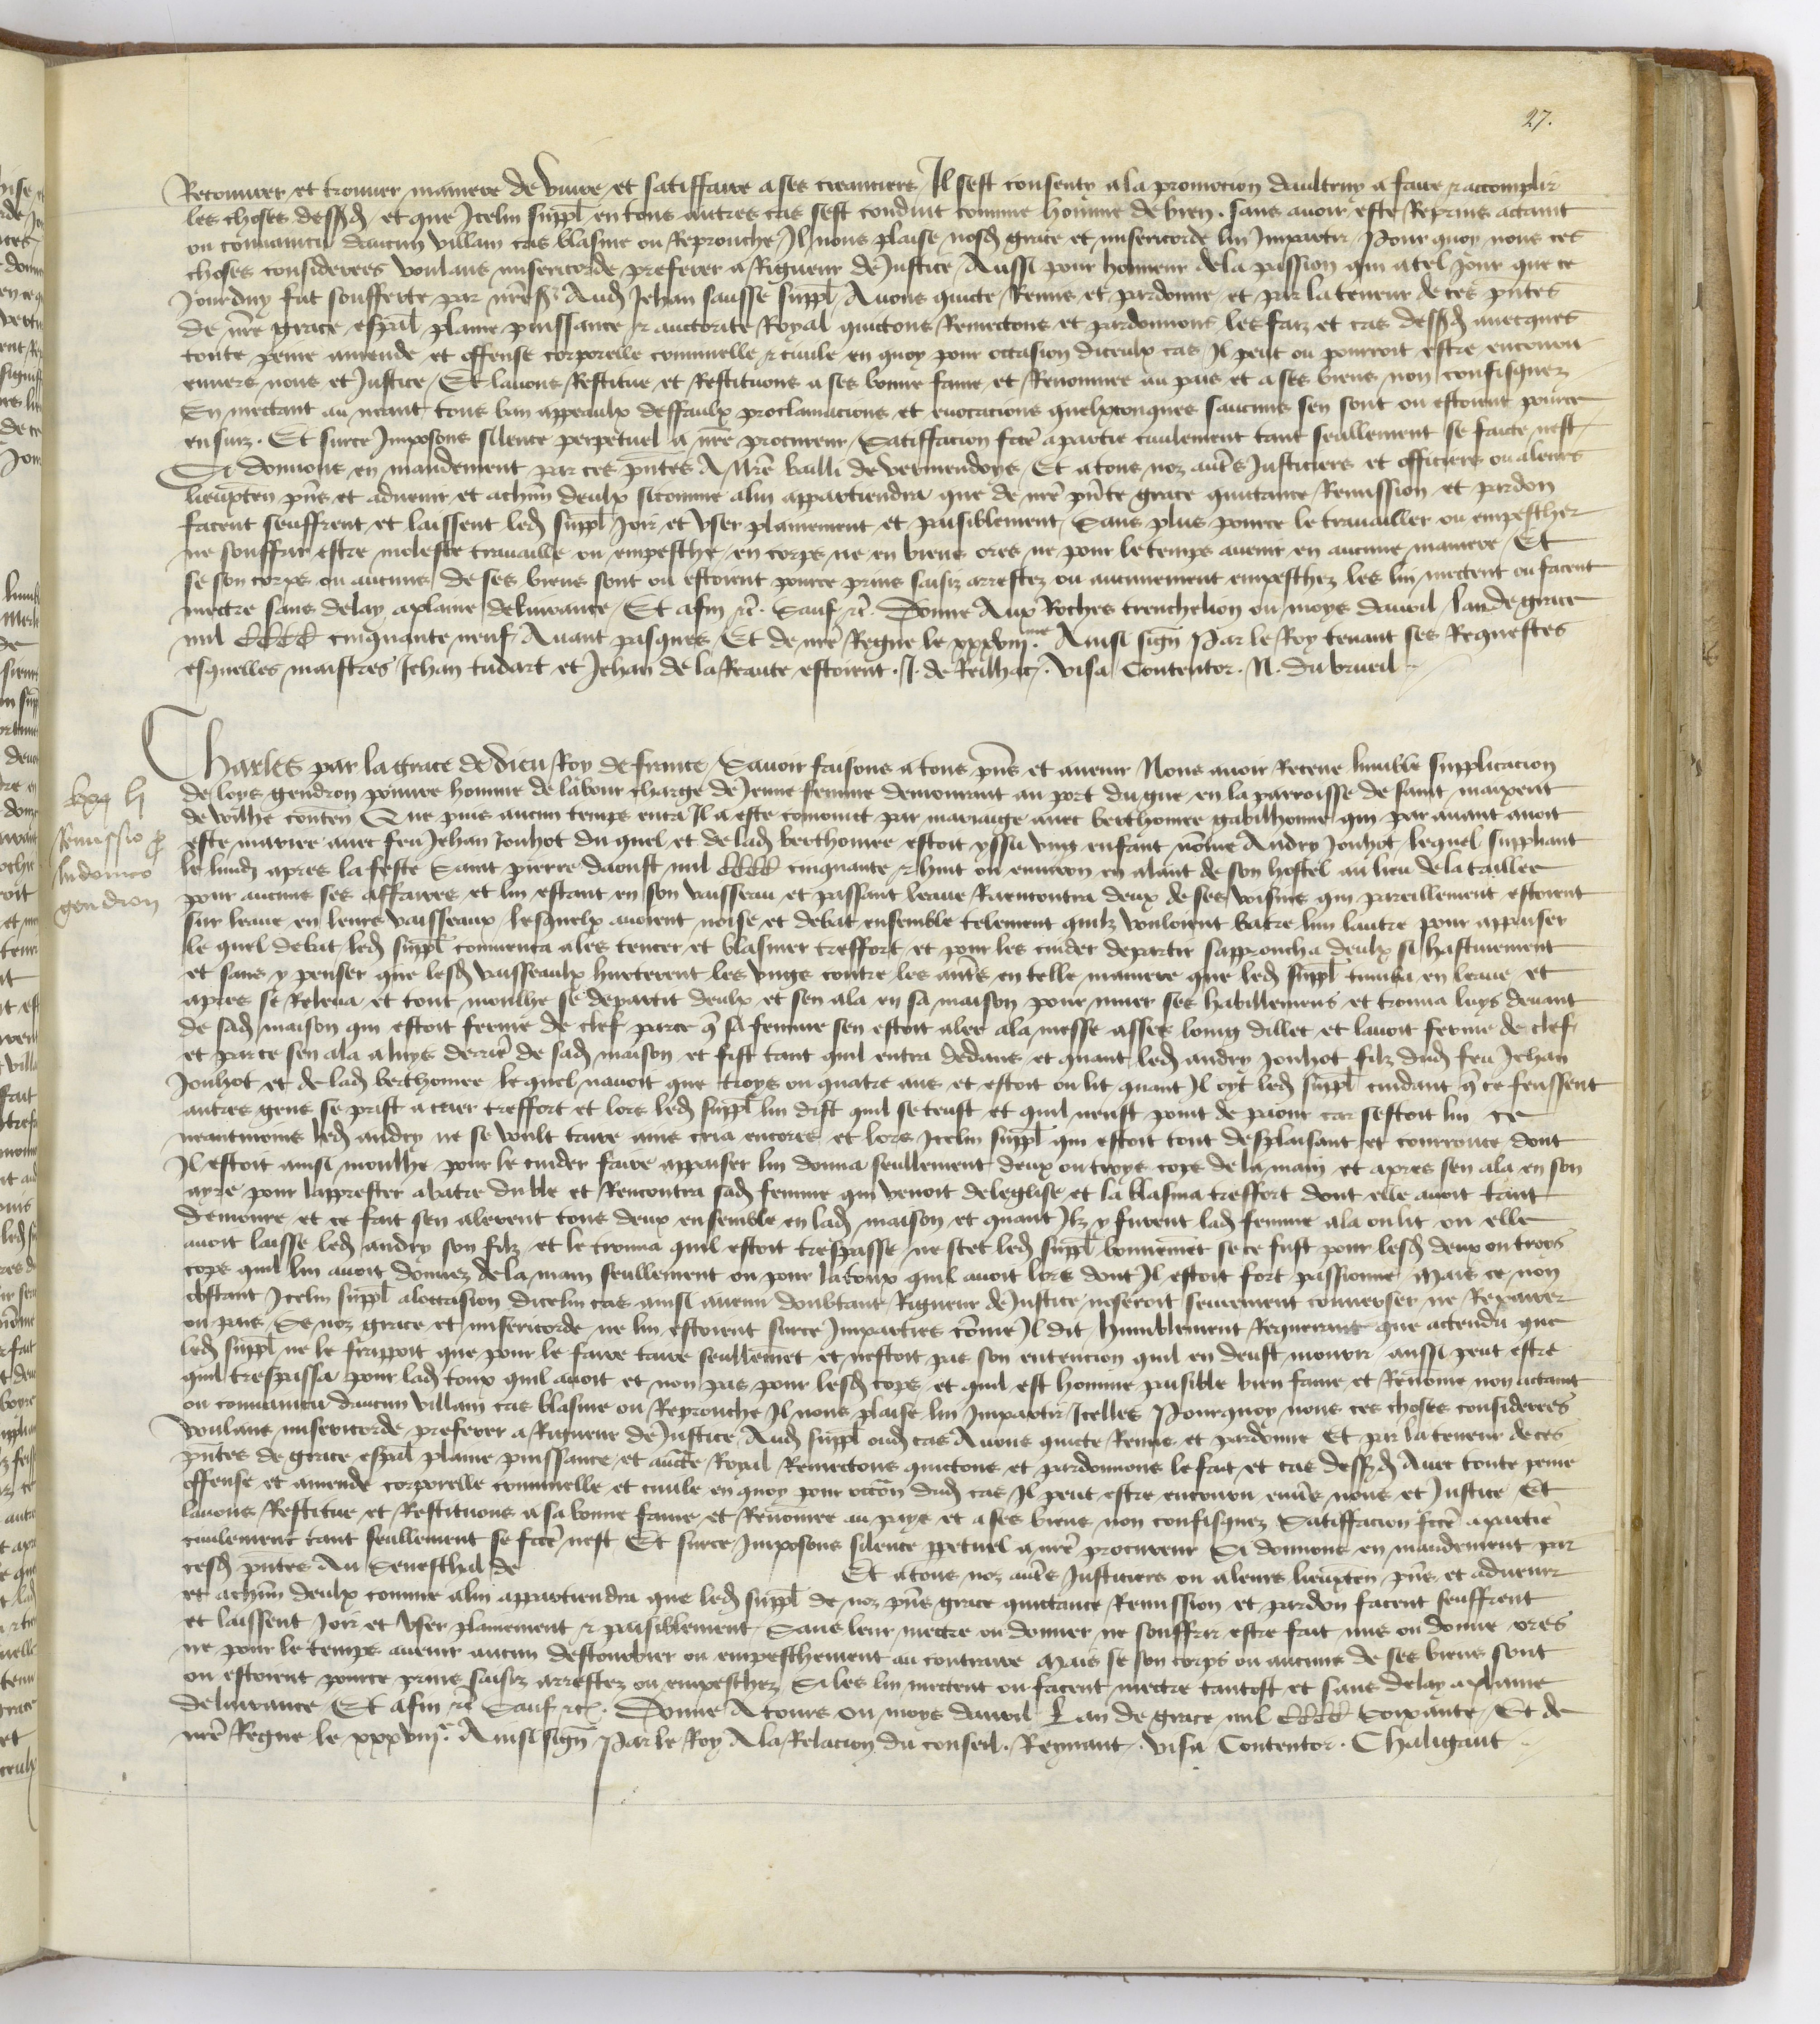 27.
Recouvrer et trouver maniere de vivre et satiffaire a ses creanciers Il sest consenty a la promocion daultruy a faire & acomplir
les choses dessusd et que Icelui suppl en tous autres cas sest conduit comme homme de bien. sans avoir este Reprins actaint
ou convaincu daucun villain cas blasme ou Reprouche Il nous plaise nosd grace et misericorde lui Impartir Pour quoy nous ces
choses considerees voulans misericorde preferer a Rigueur de Justice Aussi pour honneur de la passion qui a tel jour que ce
jourduy fut soufferte par nre sr Aud Jehan sausse suppl Avons quicte Remis et pardonne et par la teneur de ces pntes
de nre grace espal plaine puissance & auctorite Royal quictons Remectons et pardonnons les faiz et cas dessusd avecques
toute peine amende et offense corporelle criminelle & civile en quoy pour occasion diceulx cas Il peut ou pourroit estre encouru
envers nous et Justice Et lavons Restitue et Restituons a ses bonne fame et Renommee au pais et a ses biens non confisquez
En mectant au neant tous ban appeaulx deffaulx proclamacions et evocacions quelxconques saucuns sen sont ou estoient pource
ensuiz. Et surce Imposons silence perpetuel a nre procureur Satiffacion fcte a partie civilement tant seullement se faicte nest
Si donnons en mandement par ces pntes A Nre bailli de vermendoys Et a tous noz autres Justiciers et officiers ou a leurs
lieuxten pns et advenir et a chun deulx sicomme a lui appartiendra que de nre pnte grace quictance Remission et pardon
facent seuffrent et laissent led suppl Joir et user plainement et paisiblement Sans plus pource le travailler ou empescher
ne souffrir estre moleste travaille ou empesche en corps ne en biens ores ne pour le temps avenir en aucune maniere Et
se son corps ou aucuns de ses biens sont ou estoient pource prins saisiz arrestez ou aucunement empeschez les lui mectent ou facent
mectre sans delay a plaine delivrance Et afin &c. Sauf &c. Donne Aux Roches trenchelion ou moys davril lan de grace
mil CCCC cinquante neuf Avant pasques Et de nre Regne le xxxviii me Ainsi sign Par le Roy tenant ses Requestes
esquelles maistres Jehan tudart et Jehan de la Reaute estoient. J. de Reilhac. visa Contentor. N. du brueil
Charles par la grace de dieu Roy de france Savoir faisons a tous pns et avenir Nous avoir Receue humble supplicacion
de loys gendron pouvre homme de labour charge de Jeune femme demourant au port du gue en la parroisse de saint maixent
de villie conten Que puis aucun temps enca Il a este conioinct par mariaige avec berthomee gabilhonne qui par avant avoit
este mariee avec feu Jehan Jouhot du quel et de lad berthomee estoit yssu ung enfant nomme Andry Jouhot lequel suppliant
le lundi apres la feste Saint pierre daoust mil CCCC cinquante & huit ou environ en alant de son hostel au lieu de la taillee
pour aucuns ses affaires et lui estant en son vaisseau et passant leaue Rencontra deux de ses voisins qui pareillement estoient
sur leaue en leurs vaisseaux lesquelx avoient noise et debat ensemble telement quilz vouloient batre lun lautre pour appaiser
le quel debat led suppl commenca a les tencer et blasmer tresfort et pour les cuider departir sapproucha deulx si hastivement
et sans y penser que lesd vaisseaulx hurterent les ungs contre les autres en telle maniere que led suppl tumba en leaue et
apres se Releva et tout moulhe se departit deulx et sen ala en sa maison pour muer ses habillemens et trouva luys devant
de sad maison qui estoit ferme de clef parce q sa femme sen estoit alee a la messe asses loing dillec et lavoit ferme de clef
et parce sen ala a luys derrier de sad maison et fist tant quil entra dedans et quant led andry Jouhot filz dud feu Jehan
Jouhot et de lad berthomee lequel navoit que troys ou quatre ans et estoit ou lit quant Il oyt led suppl cuidant q ce feussent
autres gens se prist a crier tresfort et lors led suppl lui dist quil se teust et quil neust point de paour car sestoit lui ce
neantmoins led andry ne se voult taire ains cria encores et lors Icelui suppl qui estoit tout desplaisant et courrouce dont
Il estoit ainsi moulhe pour le cuider faire appaiser lui donna seullement deux ou troys cops de la main et apres sen ala en son
ayre pour lapprester a batre du ble et Rencontra sad femme qui venoit de leglise et la blasma tresfort dont elle avoit tant
demoure et ce fait sen alerent tous deux ensemble en lad maison et quant Ilz y furent lad femme ala ou lit ou elle
avoit laisse led andry son filz et le trouva quil estoit trespasse ne scet led suppl bonnemet se ce fust pour lesd deux ou troys
cops quil lui avoit donnez de la main seullement ou pour la toux quil avoit lors dont Il estoit fort passionne Mais ce non
obstant Icelui suppl a loccasion dicelui cas ainsi avenu doubtant Rigueur de Justice noseroit seurement converser ne Reparer
ou pais Se noz grace et misericorde ne lui estoient surce Imparties comme Il dit humblement Requerant que actendu que
led suppl ne le frappoit que pour le faire taire seullemet et nestoit pas son entencion quil en deust mourir aussi peut estre
quil trespassa pour lad toux quil avoit et non pas pour lesd cops et quil est homme paisible bien fame et Renomme non actaint
ou convaincu daucun villain cas blasme ou Reprouche Il nous plaise lui Impartir Icelles Pourquoy nous ces choses considerees
voulans misericorde preferer a Rigueur de Justice Aud suppl oud cas Avons quicte Remis et pardonne Et par la teneur de ces
pntes de grace espal plaine puissance et aucte Royal Remectons quictons et pardonnons le fait et cas dessusd Avec toute peine
offense et amende corporelle criminelle et civile en quoy pour occon dud cas Il peut estre encouru envers nous et Justice Et
lavons Restitue et Restituons a sa bonne fame et Renommee au pays et a ses biens non confisquez Satiffacion fcte a partie
civilement tant seullement se fcte nest Et surce Imposons silence ppetuel a nre procureur Si donnons en mandement par
cesd pntes Au Seneschal de Et a tous noz autres Justiciers ou a leurs lieuxten pns et advenir
et a chun deulx comme a lui appartiendra que led suppl de noz pns grace quictance Remission et pardon facent seuffrent
et laissent Joir et user plainement & paisiblement Sans leur mectre ou donner ne souffrir estre fait mis ou donne ores
ne pour le temps avenir aucun destourbier ou empeschement au contraire Mais se son corps ou aucuns de ses biens sont
ou estoient pource prins saisiz arrestez ou empeschez Si les lui mectent ou facent mectre tantost et sans delay a plaine
delivrance Et afin &c Sauf &c. Donne A tours ou moys davril Lan de grace mil CCCC Soixante Et de
nre Regne le xxxviii e Ainsi sign Par le Roy A la Relacion du conseil. Reynaut. visa Contentor. Chaligaut
Remissio p
ludovico
gendron